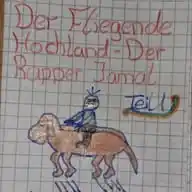 Der Fliegende
Hochland-Der
Rapper Jamal
Teil 1